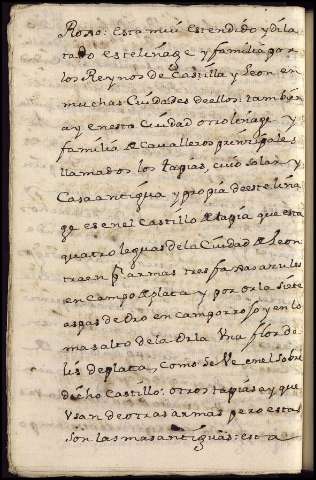 Roxo: esta mui estendido y dila
tado este linage y familia por
los Reynos de Castilla y Leon en
muchas Ciudades de ellos: tambien
ay en esta Ciudad otro linage y
familia de Cavalleros prinzipales
llamados los tapias, cuio solar y
Casa antigua y propia de este lina
ge es en el Castillo de tapia que esta
quatro leguas de la Ciudad de Leon
traen pr armas tres faxas azules
en campo de plata y por orla siete
aspas de Oro en campo roxo y en lo
mas alto de la Orla Una flor de
lis de plata, como se Ve en el sobre
dicho Castillo: otros tapias ay que
Usan de otras armas pero estas
son las mas antiguas: esta